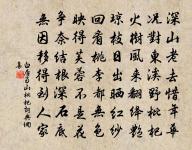 深山老去惜年華
況對東溪野枇杷
火樹風來翻絳焰
瓊枝日出晒紅紗
回看桃李都無色
映得芙蓉不是花
爭奈結根深石底
無因移得到人家
白居易山枇杷